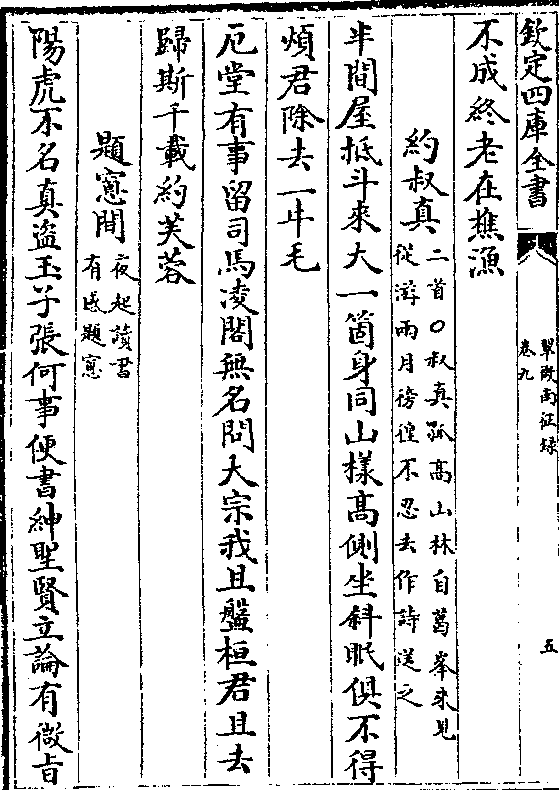 欽定四庫全書
翠微南征録
卷九
五
不成終老在樵漁
約叔真
二首○叔真孤高山林自葛峯來見
從游兩月徬徨不忍去作詩送之
半間屋抵斗來大一箇身同山樣高側坐斜眠俱不得
煩君除去一牛毛
卮堂有事留司馬凌閣無名問大宗我且盤桓君且去
歸斯千載約芙蓉
題窻間
夜起讀書
有感題窻
陽虎不名真盗玉子張何事便書紳聖賢立論有微旨